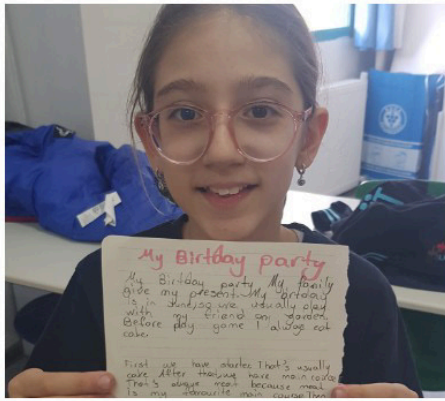 My Birtday party
My Birtday party My family
give my present. My brtday
is in June, so we usually play
with my friend any garden.
Before play game I always eat
cake.
First we have starter. That's usually
cake After that we have main course
That's always meat because meat
is my favourite main course. Then